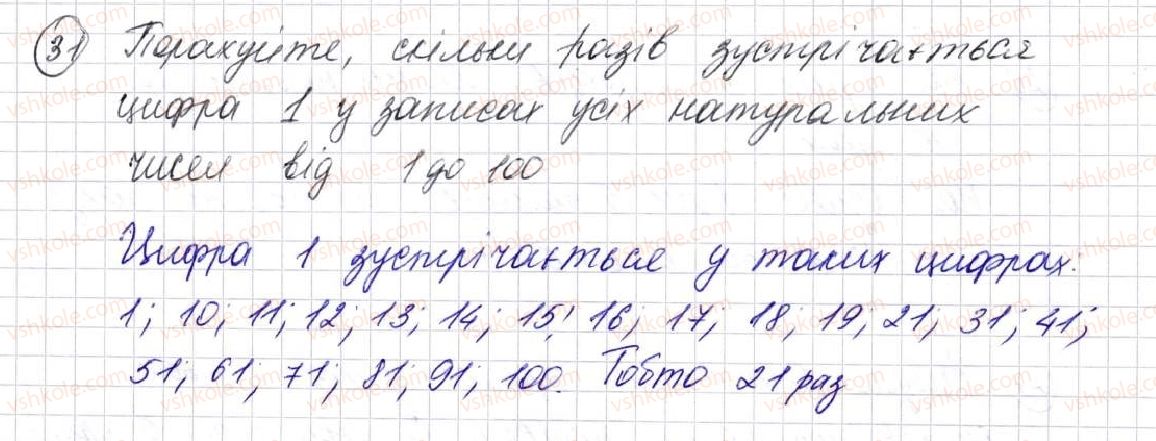 31 Порахуйте, скільки разів зустрічається
цифра 1 у записах усіх натуральних
чисел від 1 до 100
Цифра 1 зустрічається у таких цифрах:
1; 10; 11; 12; 13; 14; 15; 16; 17; 18; 19; 21; 31; 41;
51; 61; 71; 81; 91; 100. Тобто 21 раз